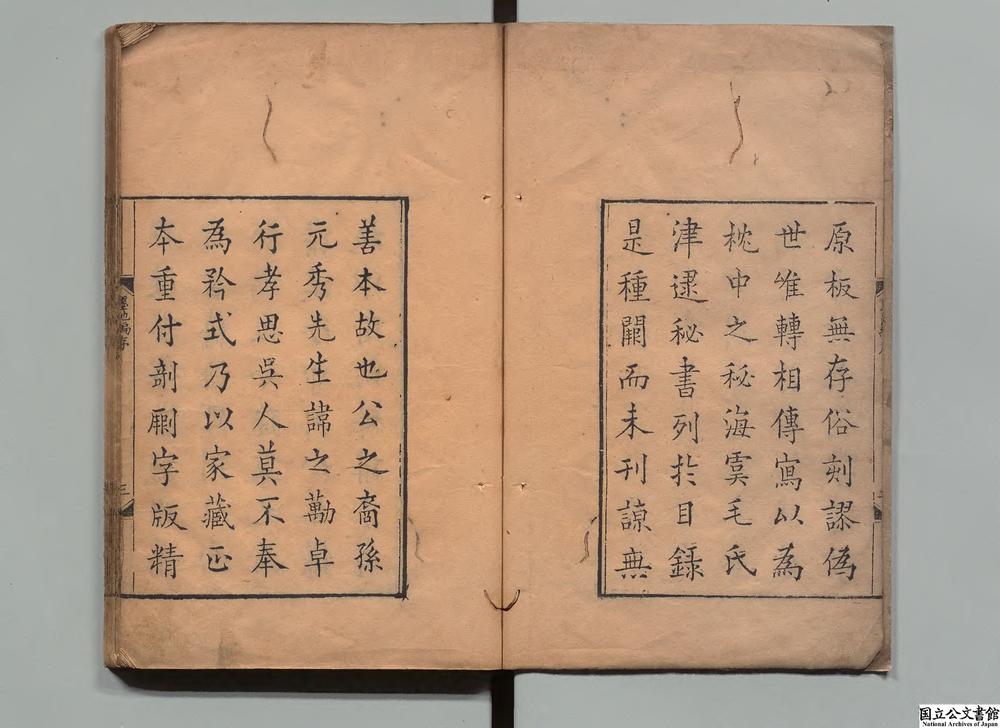 原板無存俗刻謬偽
世唯轉相傳寫以為
枕中之秘海虞毛氏
津逮秘書列於目錄
是種闕而未刊諒無
善本故也公之裔孫
元秀先生諱之勤卓
行孝思吳人莫不奉
為矜式乃以家藏正
本重付剞劂字版精
三
国立公文書館
National Archives of Japan